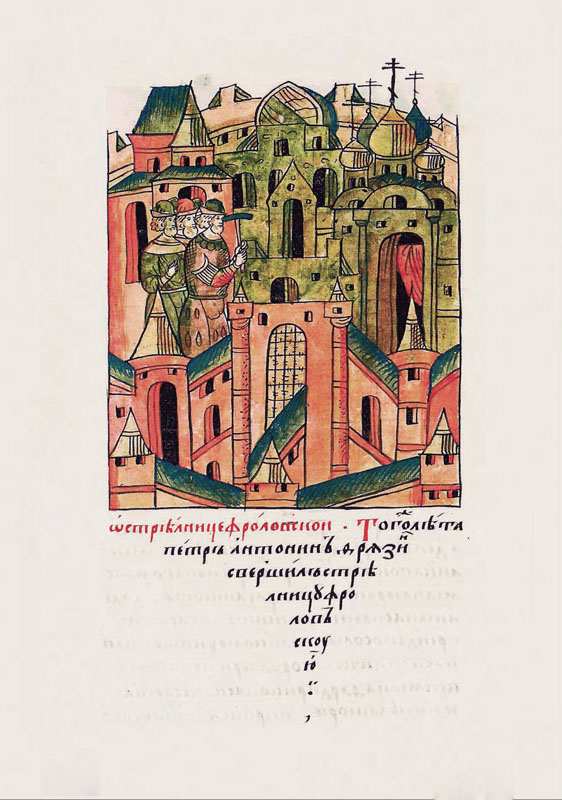 ѡстрѣлницефроловскои · Тогол̾ѣта
петръ антонинъ, ѳрѧзинъ
свершилъстрѣ
лницуфро
ловъ
скоу
ю